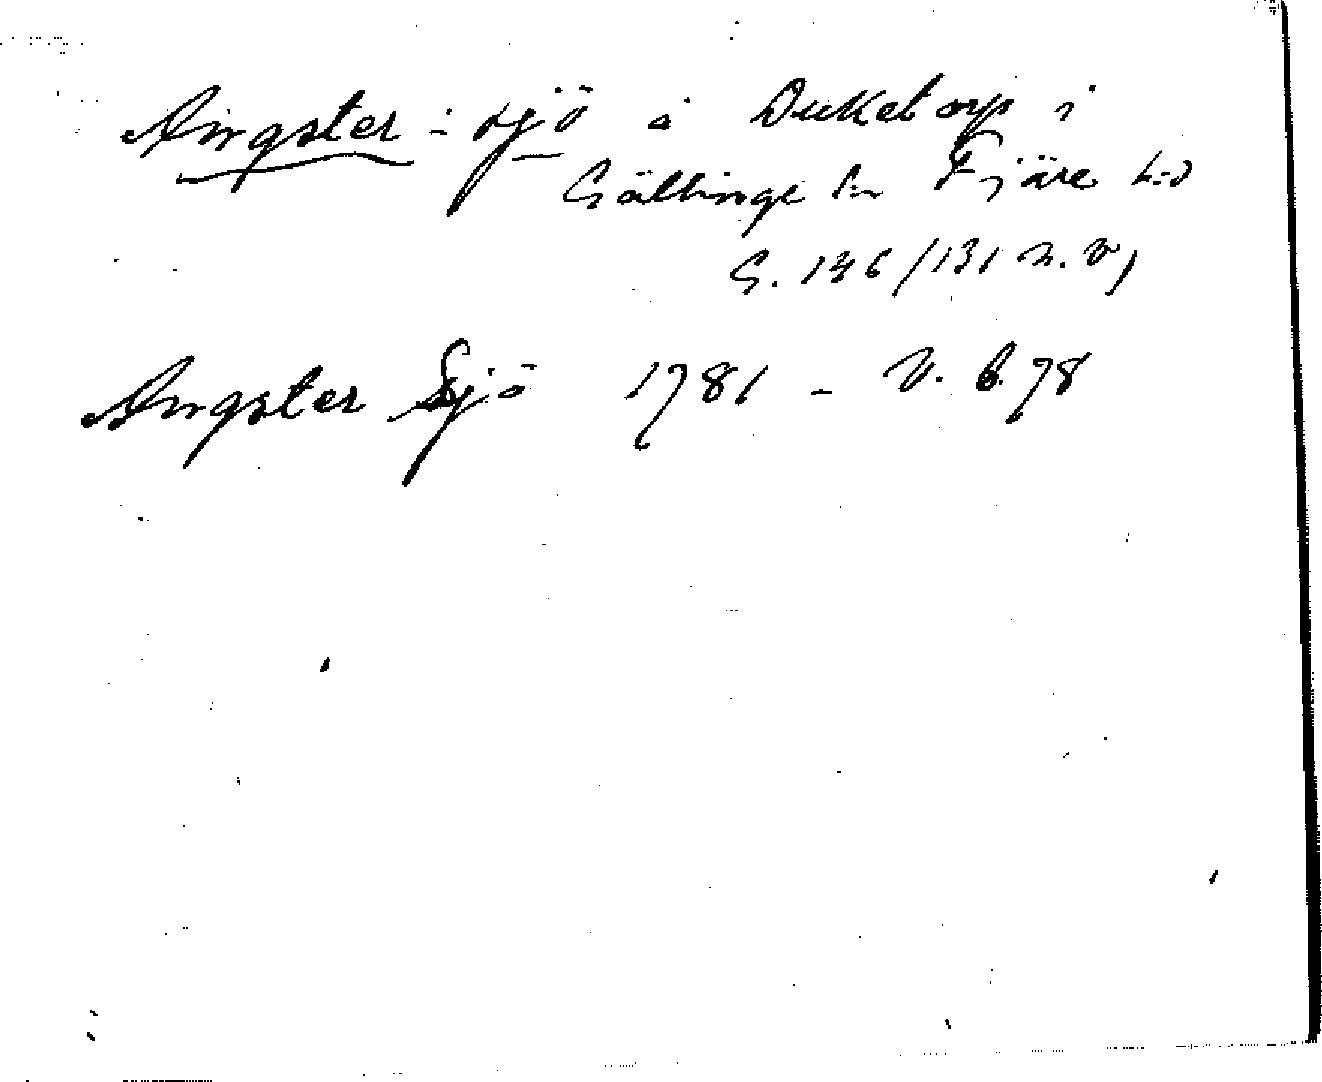 Ångster-sjö å Duketorp i
Gällinge sn Fjäre h:d
G. 136/131 n.v,
Ångster Sjö 1781 - V. b. 78